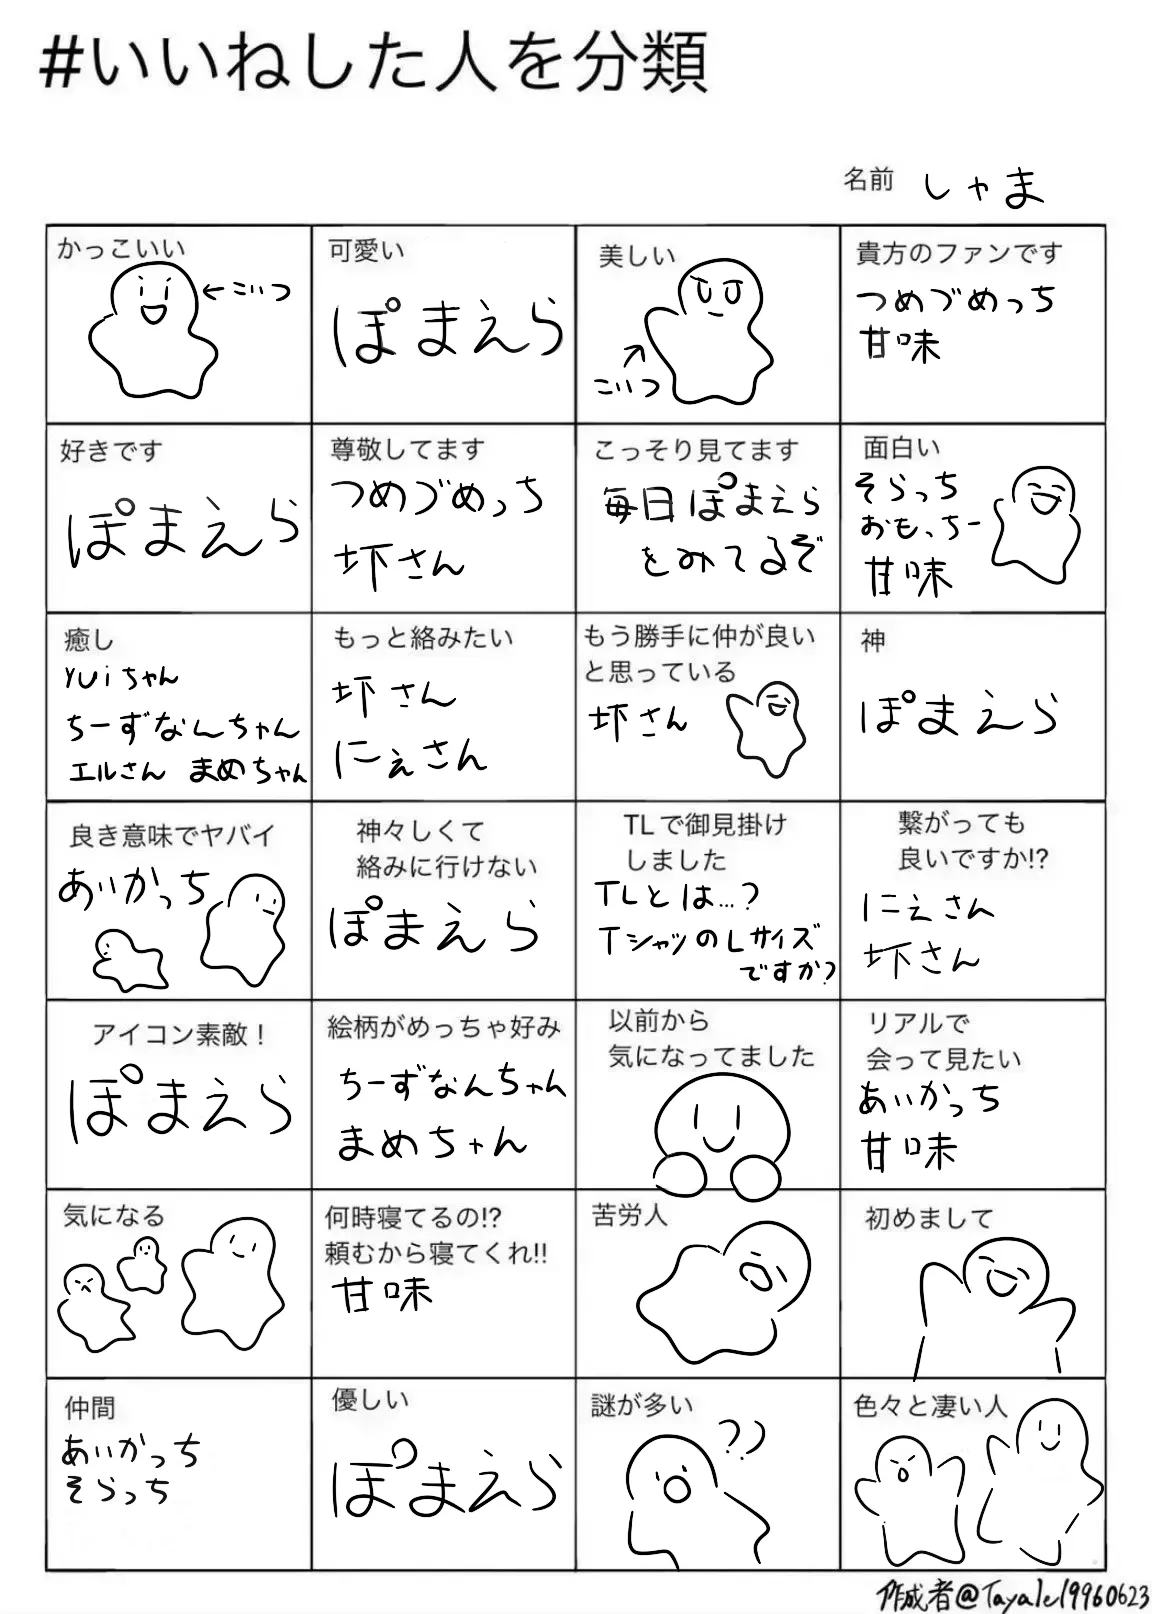 #いいねした人を分類
名前 しゃま
かっこいい
←こいつ
可愛い
ぽまえら
美しい
こいつ
貴方のファンです
つめづめっち
甘味
好きです
ぽまえら
尊敬してます
つめづめっち
圷さん
こっそり見てます
毎日ぽまえら
をみてるぞ
面白い
そらっち
おもっちー
甘味
癒し
yuiちゃん
ちーずなんちゃん
エルさん まめちゃん
もっと絡みたい
圷さん
にぇさん
もう勝手に仲が良い
と思っている
圷さん
神
ぽまえら
良き意味でヤバイ
あいかっち
神々しくて
絡みに行けない
ぽまえら
TLで御見掛け
しました
TLとは…?
TシャツのLサイズ
ですか?
繋がっても
良いですか!?
にぇさん
圷さん
アイコン素敵!
ぽまえら
絵柄がめっちゃ好み
ちーずなんちゃん
まめちゃん
以前から
気になってました
リアルで
会って見たい
あいかっち
甘味
気になる
何時寝てるの!?
頼むから寝てくれ!!
甘味
苦労人
初めまして
仲間
あいかっち
そらっち
優しい
ぽまえら
謎が多い
??
色々と凄い人
作成者@Tayale19960623